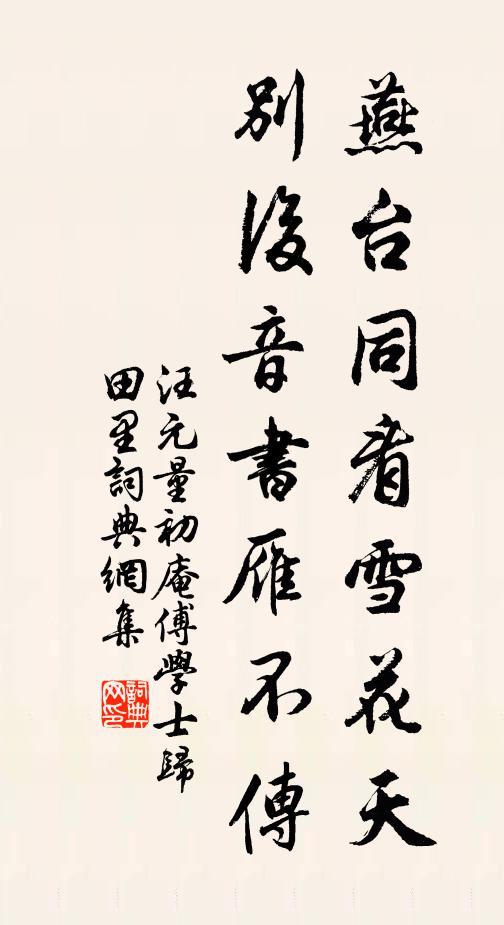 燕台同看雪花天
別後音書雁不傳
汪元量初庵傅學士歸
田里詞典網集
詞典
网印